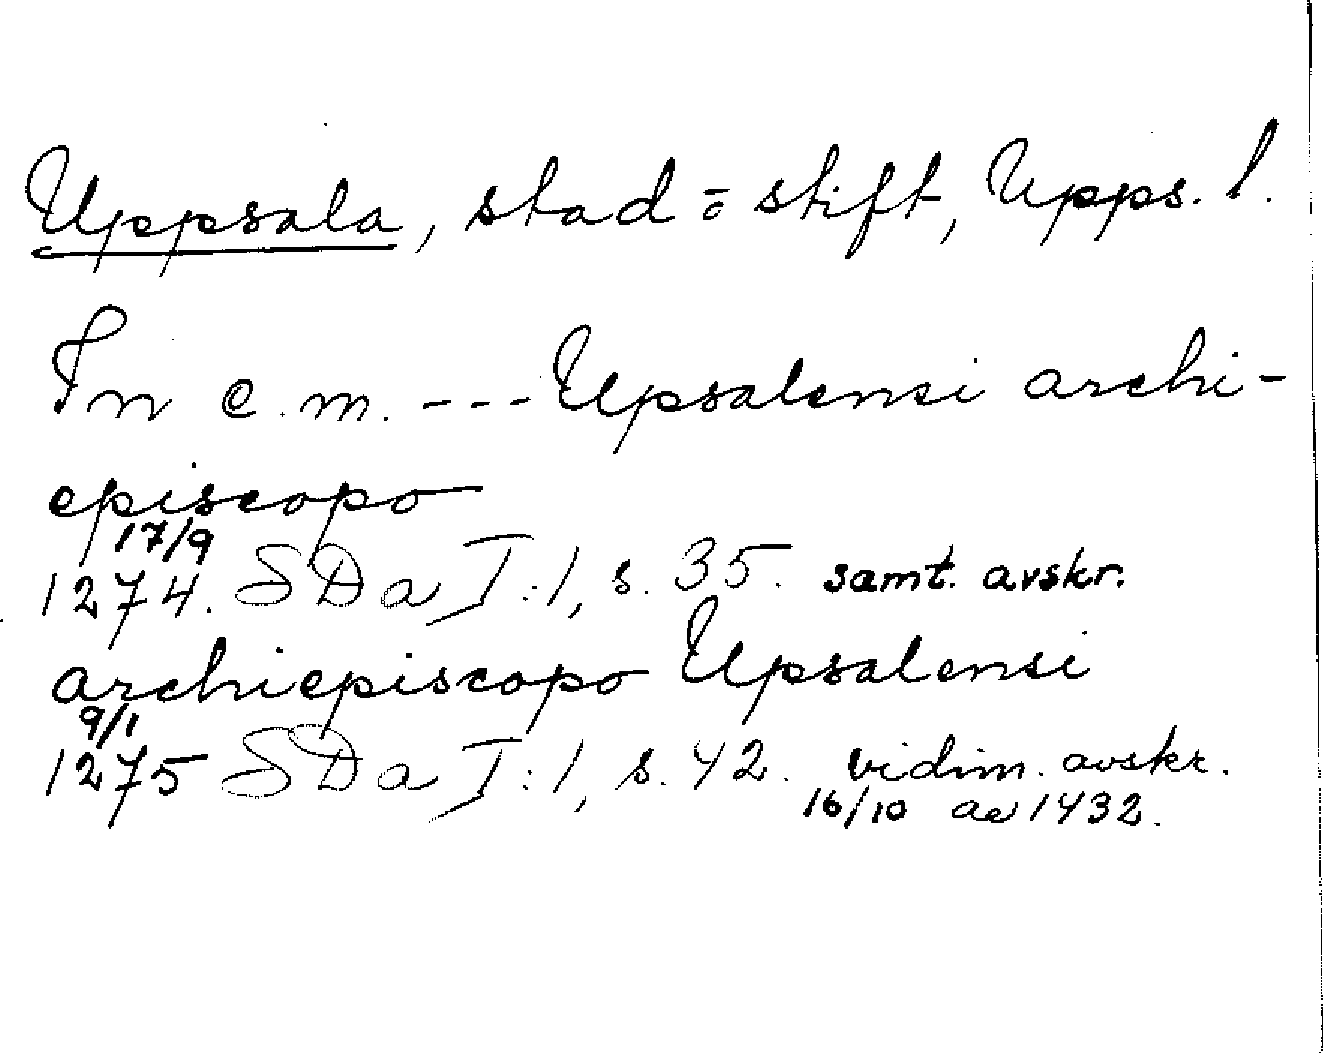 Uppsala, stad o stift, Upps. l.
In c.m. --- Upsalensi archi-
episcopo
17/9
1274. SDa I:1, s. 35. samt. avskr.
archiepiscopo Upsalensi
9/1
1275 SDa I:1, s. 42. vidim. avskr.
16/10 av 1432.